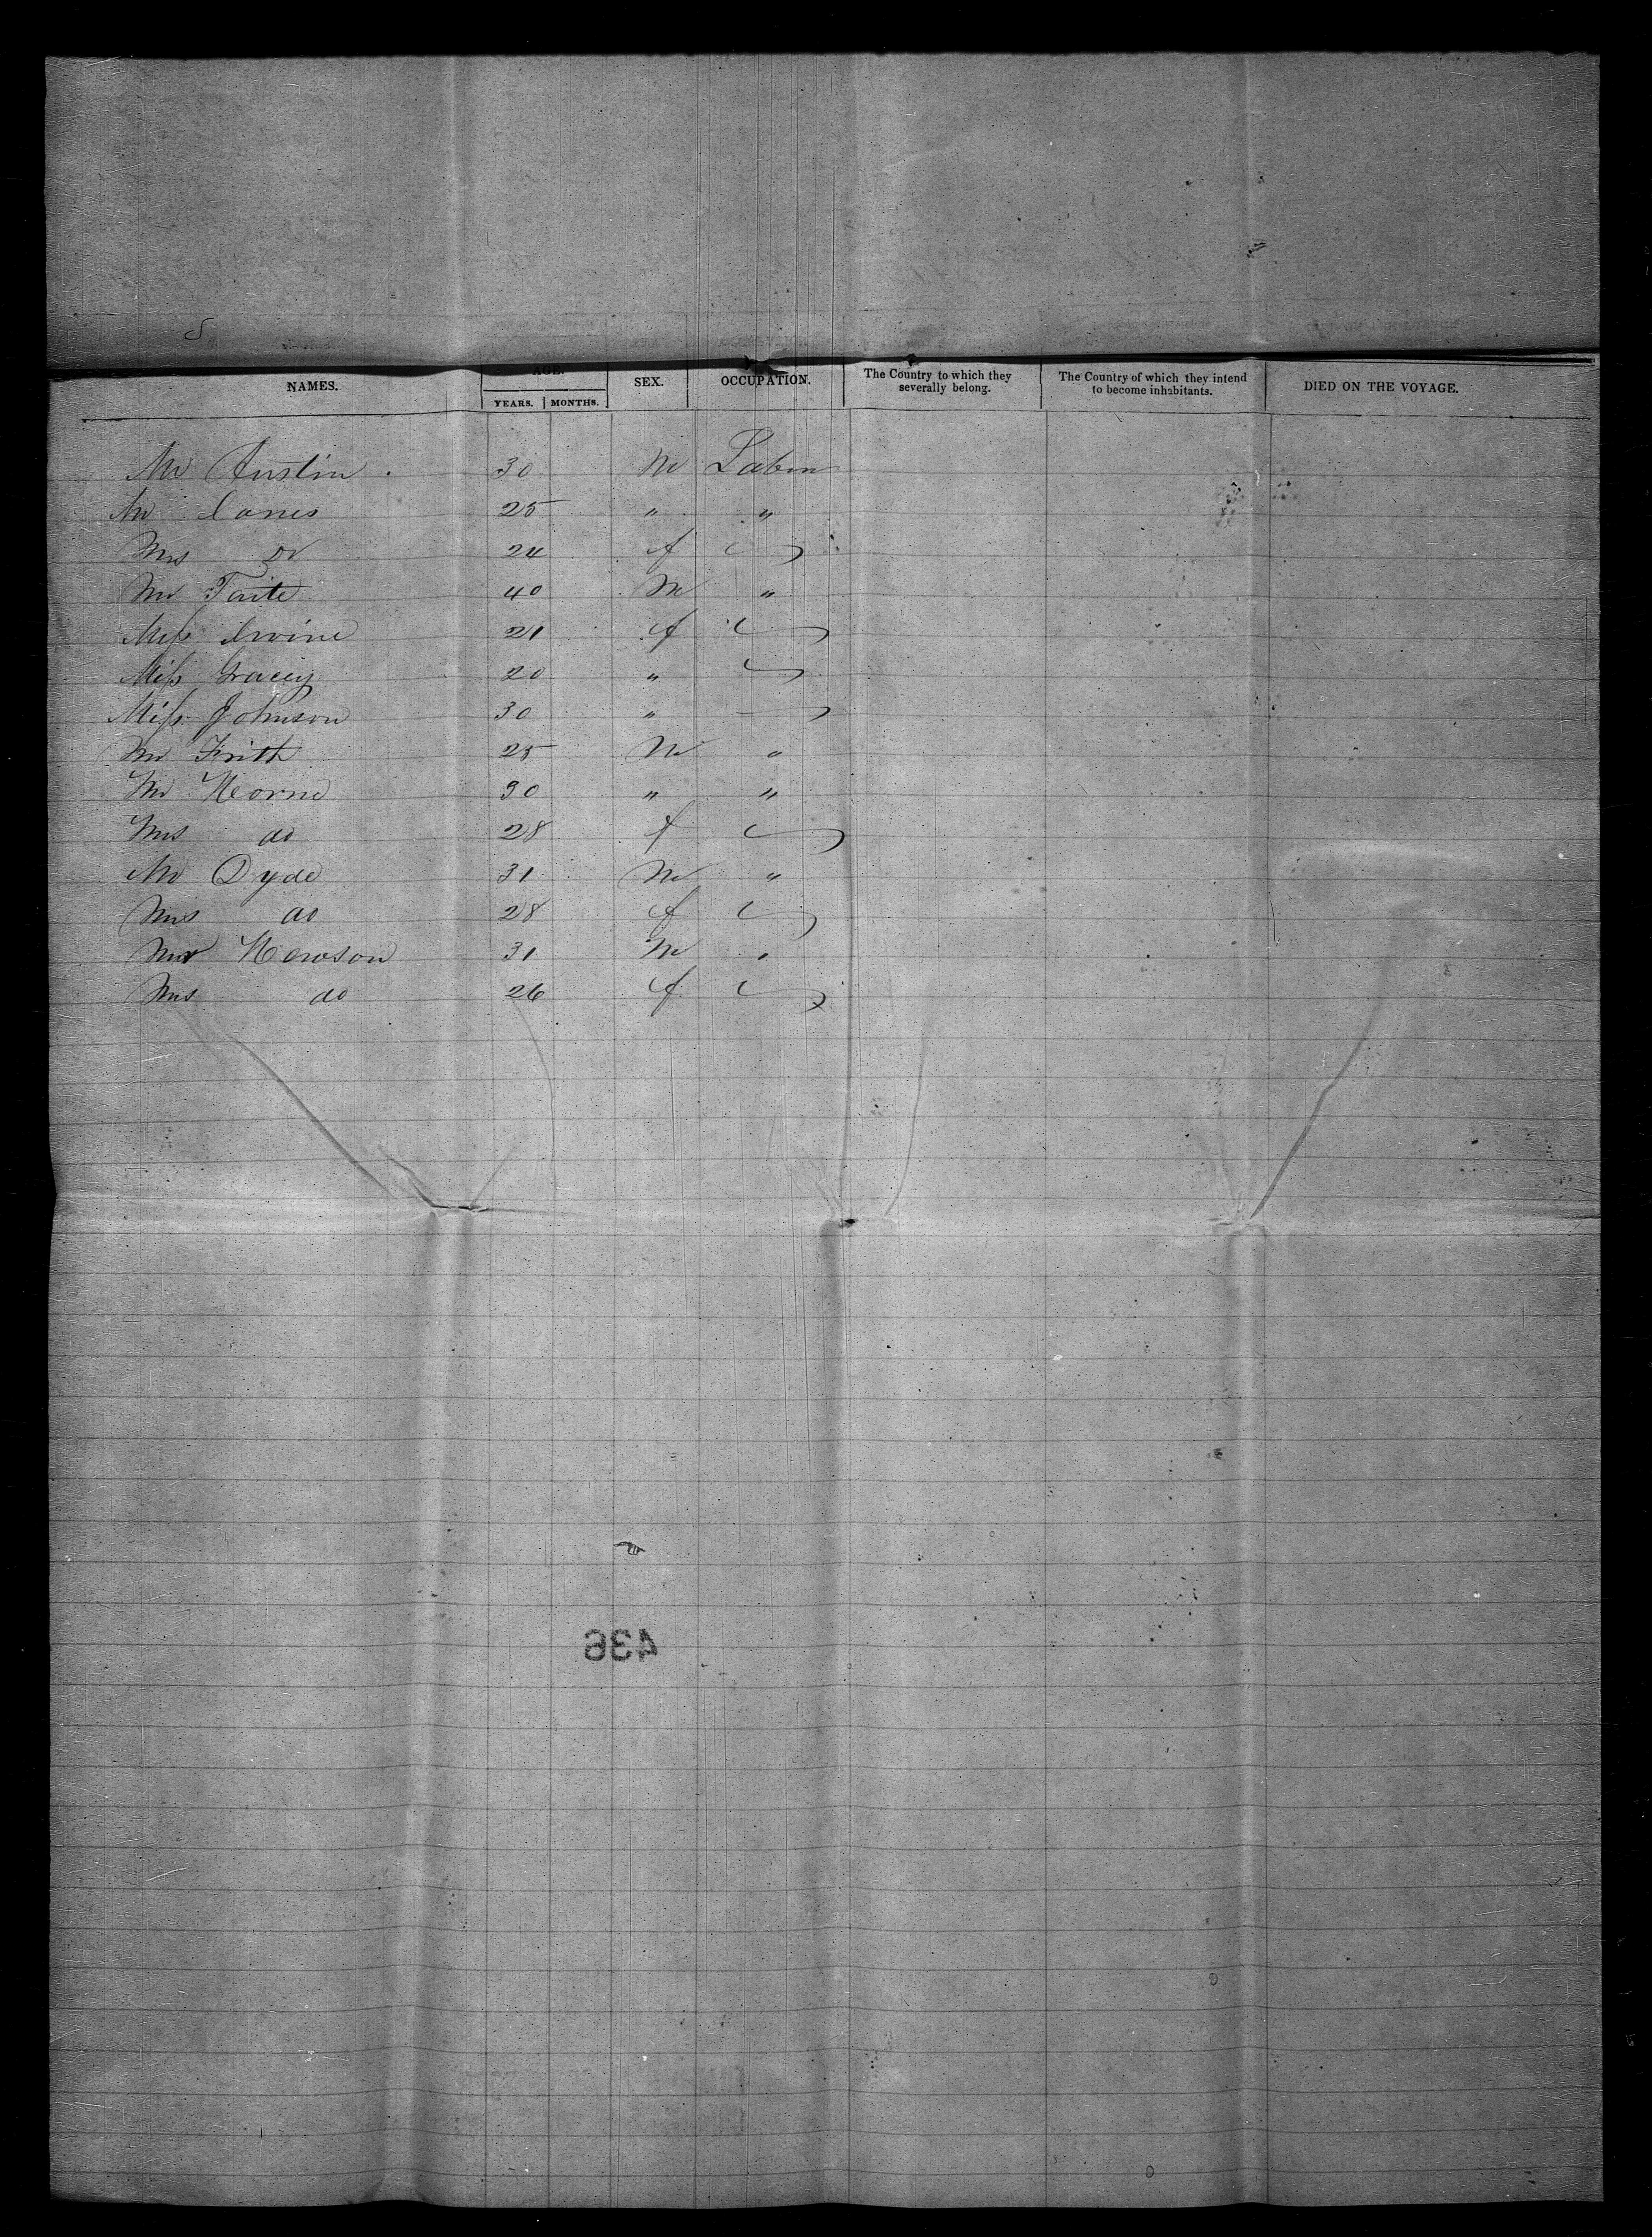 NAMES. AGE. SEX. OCCUPATION. The Country to which they severally belong. The Country of which they intend to become inhabitants. DIED ON THE VOYAGE.
YEARS. MONTHS.
Mr Austin . 30 M Labor
Mr 25 " "
Mrs do 24 f
Mr Taite 40 M "
Miss Irvine 21 f
Miss Gracey 20 "
Miss Johnson 30 "
Mr Frith 25 M "
Mr Horne 30 " "
Mrs do 28 f
Mr Dyde 31 M "
Mrs do 28 f
Mr Hewson 31 M "
Mrs do 26 f
436